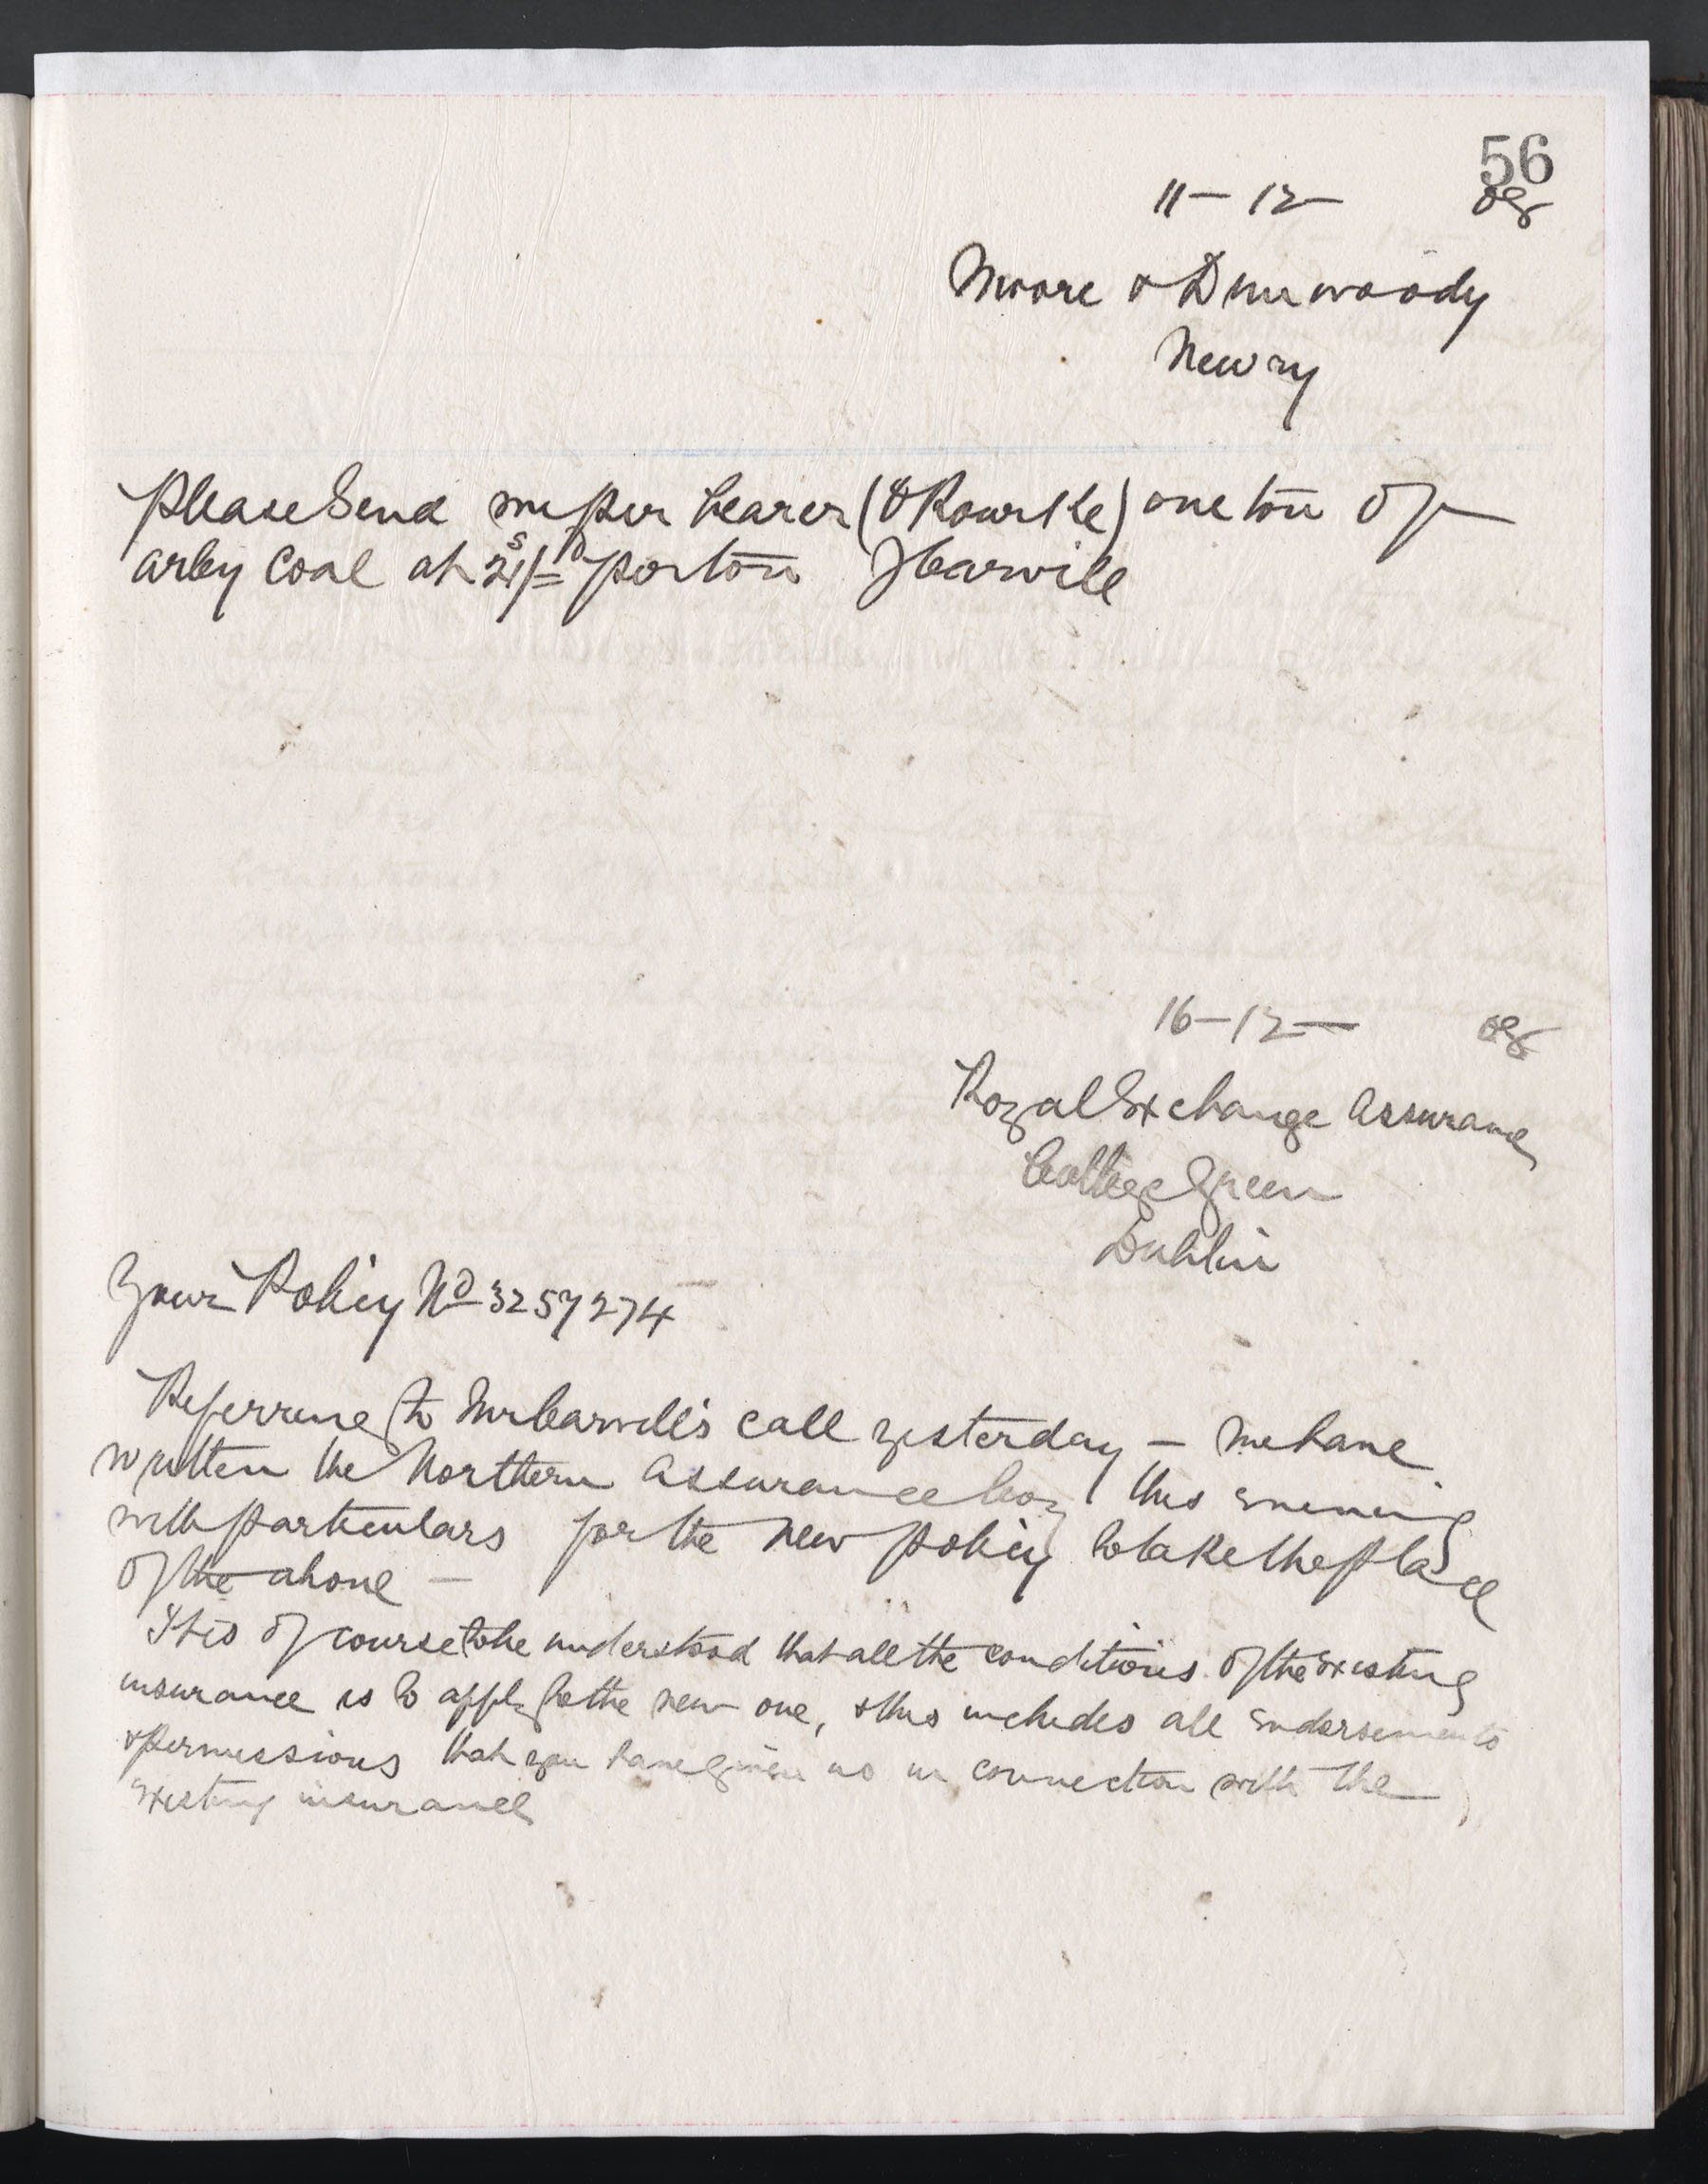 56
11 - 12 - 08
Moore & Dinwoody
Newry
Please Send me per bearer (O'Rourke) one ton of
arley Coal at 21s/=d per ton J Carvill
16 - 12 - 08
Royal Exchange Assurance
College Green
Dublin
Your Policy No 3257274
Referring to Mr Carvill's call yesterday - we have
written the Northern Assurance Coy this evening
with particulars for the new policy to take the place
of the above -
It is of course to be understood that all the conditions of the existing
insurance is to apply to the new one, & this includes all endorsements
& permissions that you have given us in connection with the
existing insurance